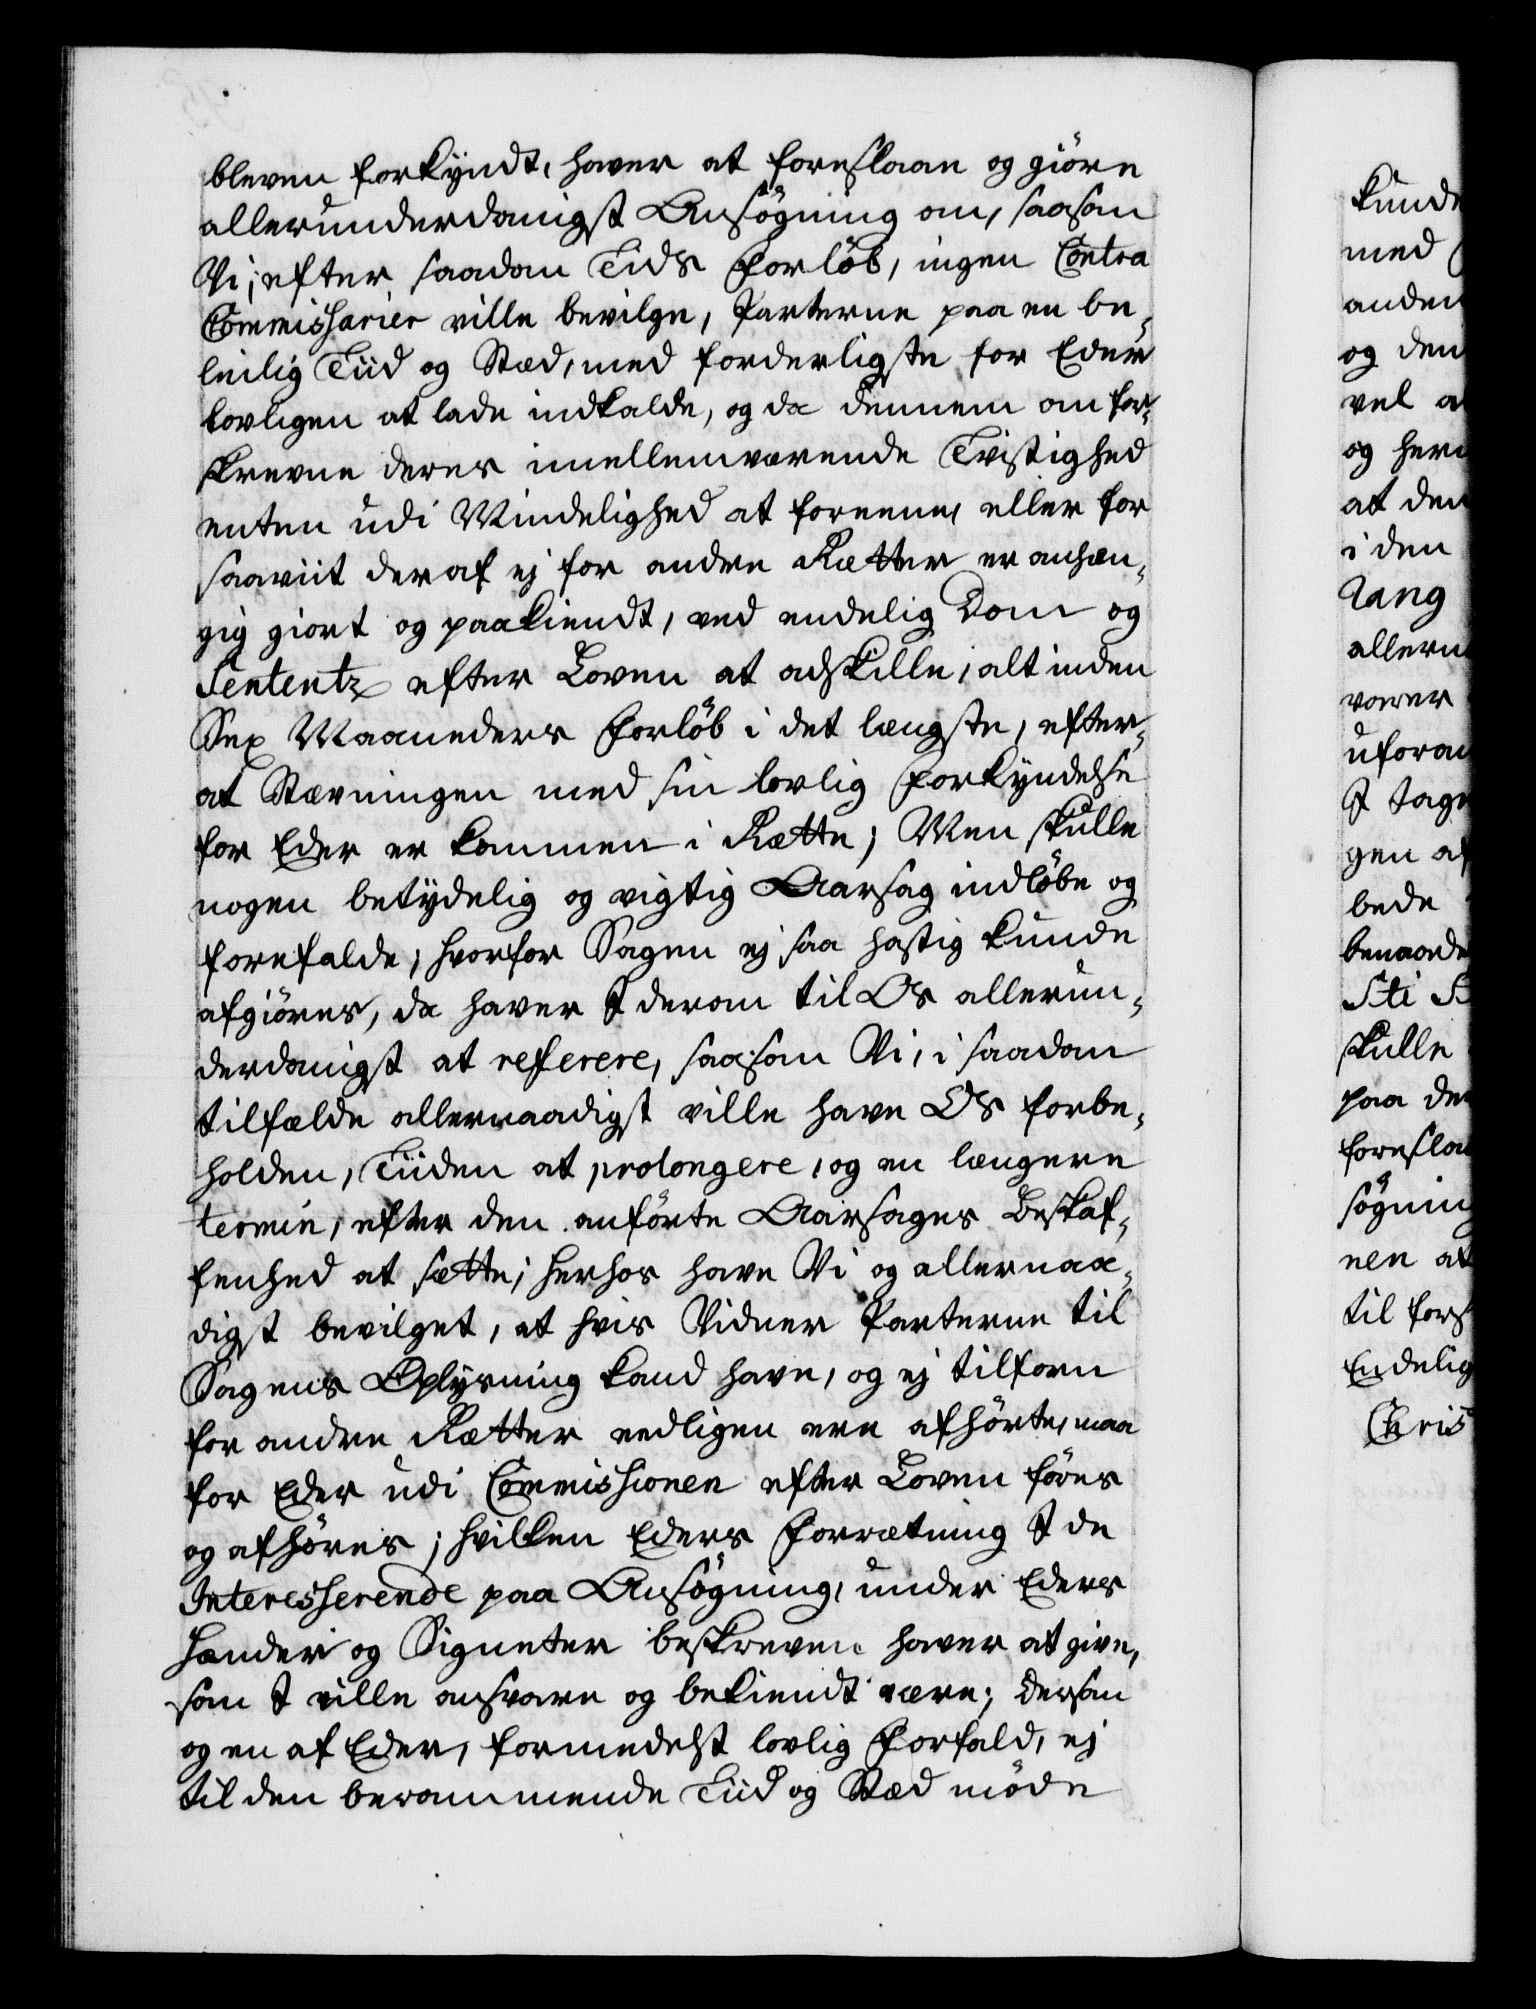 bleven forkyndt, haver at foreslaae og giöre
allerunderdanigst Ansögning om, saasom
Vi, efter saadan Tids Forlöb, ingen Contra
Commissarier ville bevilge, Parterne paa en be-
leilig Tiid og Stæd, med forderligste for Eder
lovligen at lade indkalde, og da dennem om for-
skrevne deres imellemværende Tvistighed
enten udi Mindelighed at foreene, eller for
saaviit deraf ej for andre Rætter er anhæn-
gig giort og paakiendt, ved endelig Dom og
Sententz efter Loven at adskille, alt inden
Sex Maaneders Forlöb i det længste, efter-
at Stævningen med sin lovlig Forkyndelse
for Eder er kommen i Rætte; Men skulle
nogen betydelig og vigtig Aarsag indlöbe og
forefalde, hvorfor Sagen ej saa hastig kunde
afgiöres, da haver I derom til Os allerun-
derdanigst at referere, saasom Vi, i saadan
tilfælde allernaadigst ville have Os forbe-
holden, Tiiden at prolongere, og en længere
termin, efter den anförte Aarsages Beskaf-
fenhed at sætte; Herhos have Vi og allernaa-
digst bevilget, at hvis Vidner Parterne til
Sagens Oplysning kand have, og ej tilforn
for andre Rætter eedligen ere afhörte, maa
for Eder udi Commissionen efter Loven föres
og afhöres; hvilken Eders Forrætning I de
Interesserende paa Ansögning, under Eders
Hænder og Signeter beskreven haver at give,
som I ville ansvare og bekiendt være; Dersom
og en af Eder, formedelst lovlig Forfald, ej
til den berammende Tiid og Stæd möde
kunde
med
anden
og den
vel
og
at den
i den
allern
bede
skulle
paa
sögning
nen at
til
Endelig
Chris